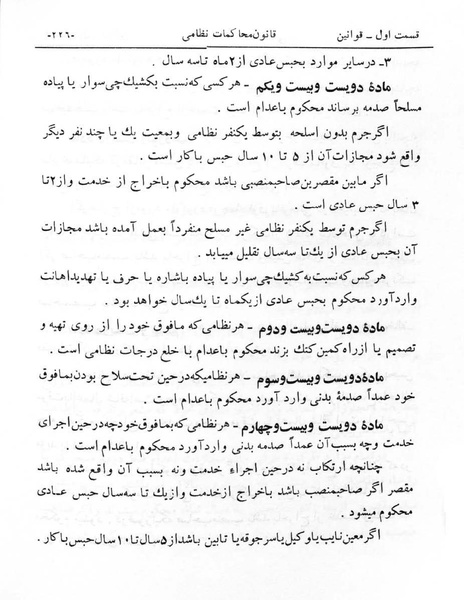 قسمت اول ـ قوانین قانون محاکمات نظامی -۲۲۶-
۳ـ در سایر موارد بحبس عادی از ۲ ماه تا سه سال .
مادهٔ دویست وبیست ویکم ـ هر کسی که نسبت بکشیک‌چی سوار یا پیاده
مسلحاً صدمه برساند محکوم باعدام است .
اگر جرم بدون اسلحه بتوسط یکنفر نظامی وبمعیت یك یا چند نفر دیگر
واقع شود مجازات آن از ۵ تا ۱۰ سال حبس با کار است .
اگر مابین مقصرین صاحبمنصبی باشد محکوم باخراج از خدمت واز ۲ تا
۳ سال حبس عادی است .
اگر جرم توسط یکنفر نظامی غیر مسلح منفرداً بعمل آمده باشد مجازات
آن بحبس عادی از یك تا سه سال تقلیل مییابد .
هر کس که نسبت به کشیك‌چی سوار یا پیاده باشاره یا حرف یا تهدید اهانت
وارد آورد محکوم بحبس عادی از یکماه تا یك سال خواهد بود .
مادهٔ دویست وبیست ودوم ـ هر نظامی که مافوق خود را از روی تهیه و
تصمیم یا از راه کمین کتك بزند محکوم باعدام با خلع درجات نظامی است .
مادهٔ دویست وبیست وسوم ـ هر نظامیکه در حین تحت سلاح بودن بمافوق
خود عمداً صدمهٔ بدنی وارد آورد محکوم باعدام است .
مادهٔ دویست وبیست وچهارم ـ هر نظامی که بمافوق خود چه در حین اجرای
خدمت وچه بسبب آن عمداً صدمه بدنی وارد آورد محکوم باعدام است .
چنانچه ارتکاب نه در حین اجراء خدمت ونه بسبب آن واقع شده باشد
مقصر اگر صاحبمنصب باشد باخراج از خدمت واز یك تا سه سال حبس عادی
محکوم میشود .
اگر معین نایب یا وکیل یا سر جوقه یا تابین باشد از ۵ سال تا ۱۰ سال حبس با کار .